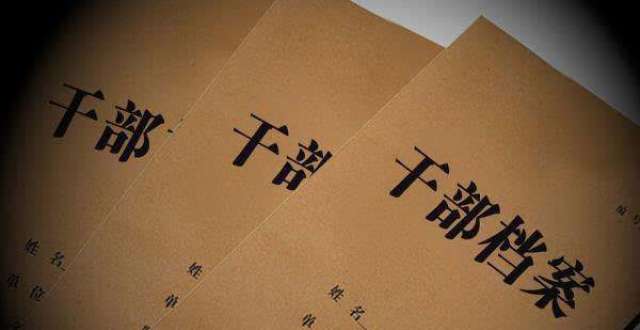 干部
姓名
单位
干部
姓
单
干部档案
编号
姓名
单